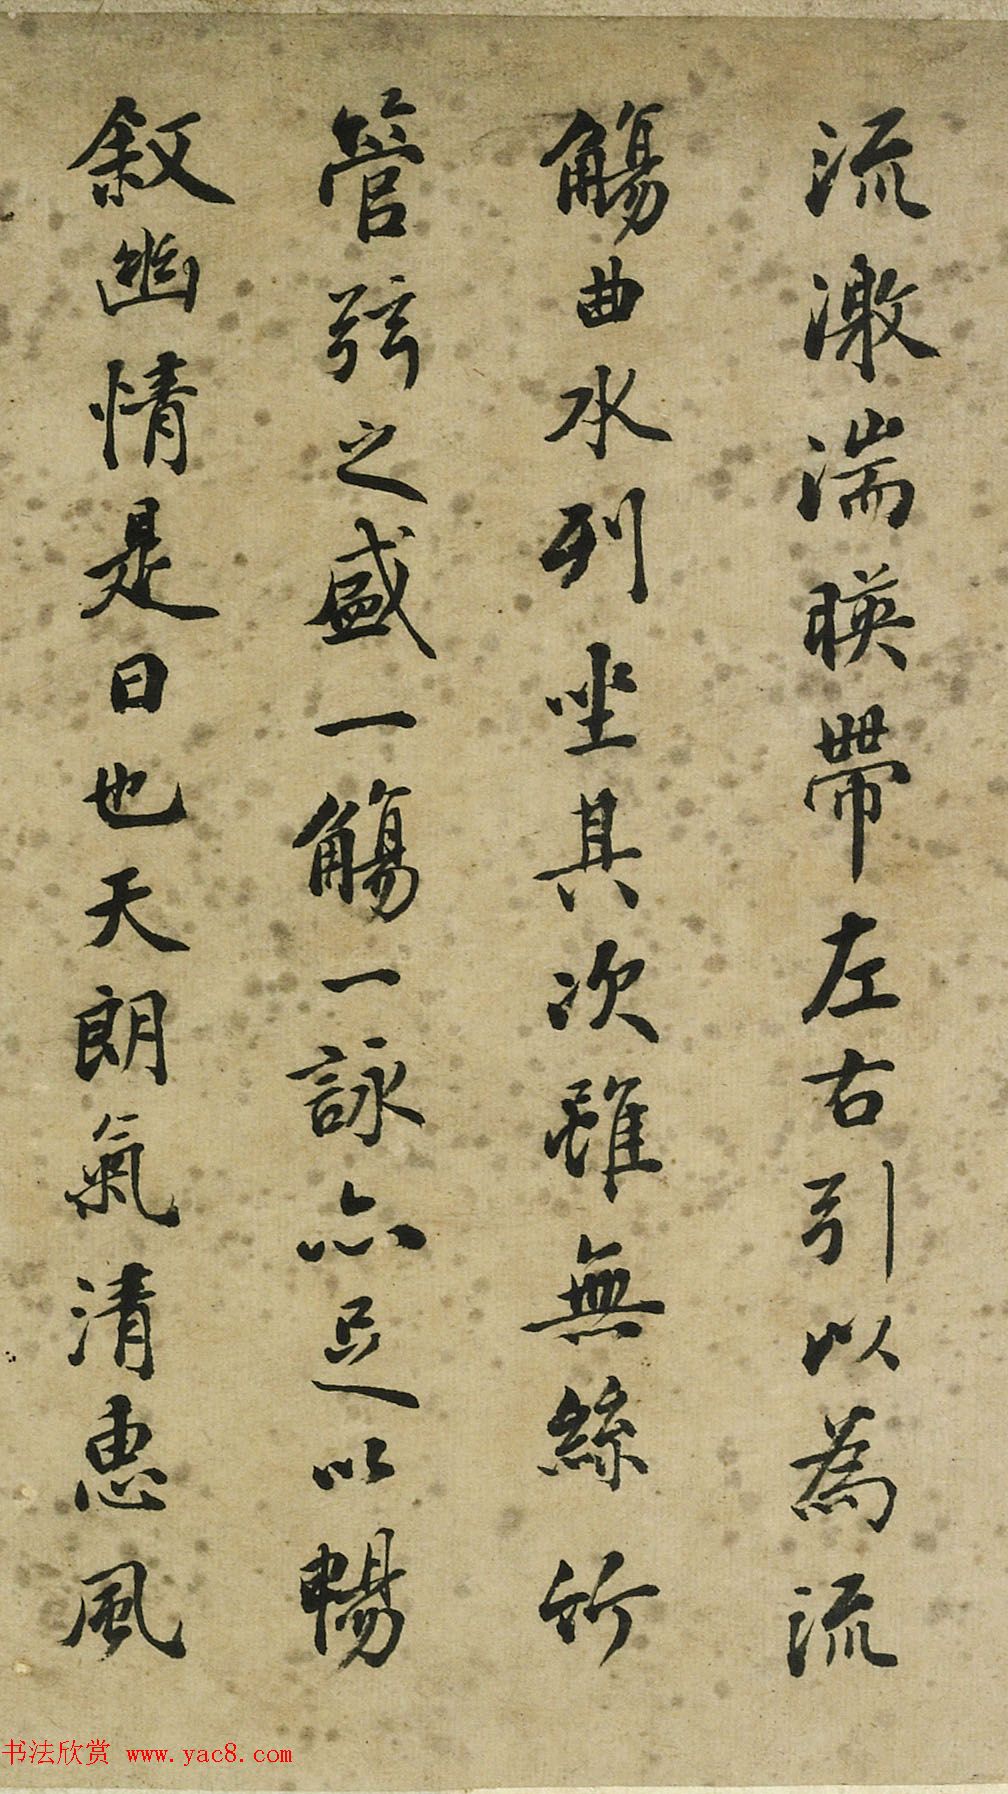 流激湍暎帶左右引以為流
觴曲水列坐其次雖無絲竹
管弦之盛一觴一詠亦足以暢
叙幽情是日也天朗氣清惠風
书法欣赏 www.yac8.com